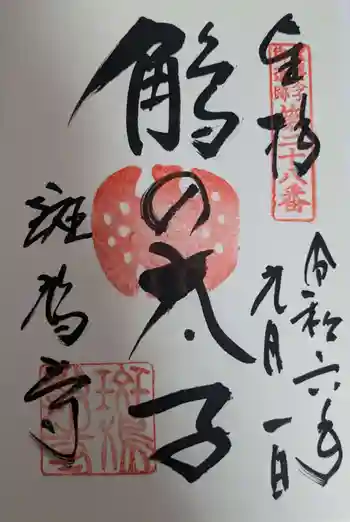 奉拝
第二十八番
令和六年
九月一日
鵤の太子
斑鳩寺
斑鳩